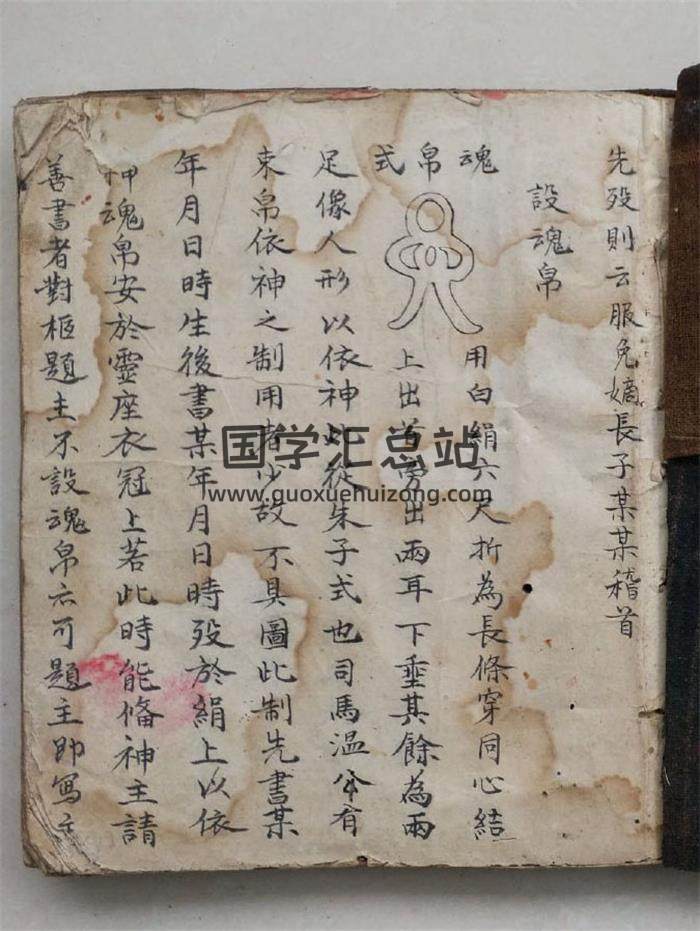 先殁則云服免嫡長子某某稽首
設魂帛
魂帛式
用白絹六尺折為長條穿同心結
上出首旁出兩耳下垂其餘為兩
足像人形以依神此從朱子式也司馬溫公有
束帛依神之制用者少故不具圖此制先書某
年月日時生後書某年月日時殁於絹上以依
神魂帛安於靈座衣冠上若此時能俻神主請
善書者對柩題主不設魂帛亦可題主即寫主
国学汇总站
www.guoxuehuizong.com